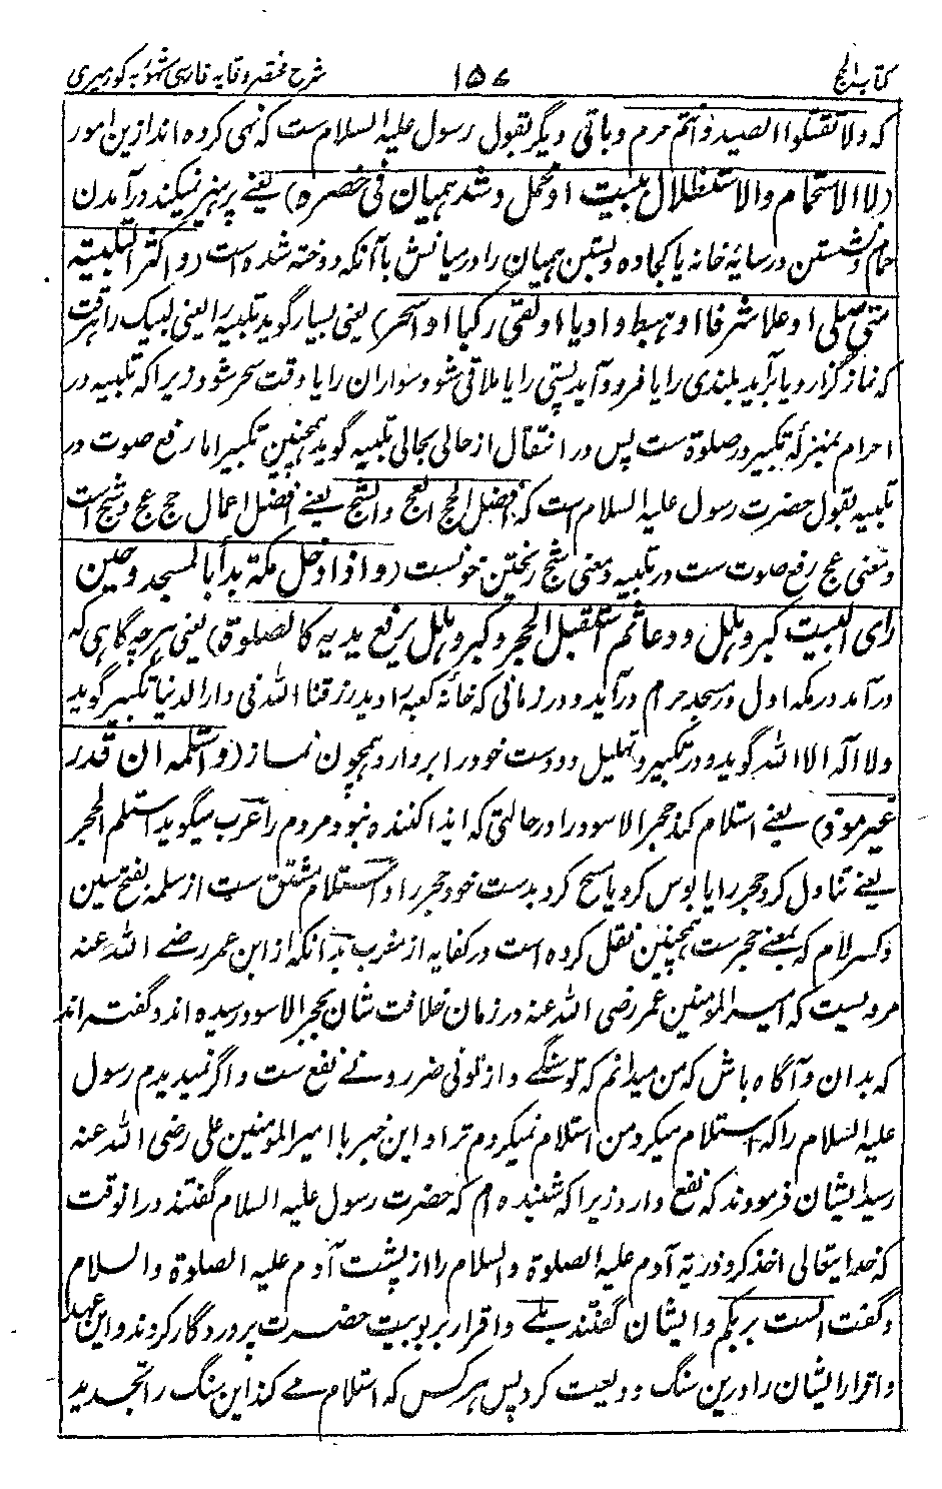 کتاب الحج ۱۵۷ شرح مختصر وقایه فارسی مشهور به کور میری
که ولا تقتلوا الصید وانتم حرم وباقی دیگر بقول رسول علیه السلام ست که نهی کرده اند ازین امور
(لا الاستحمام والاستظلال ببیت او محمل وشد همیان فی خصره) یعنے پرهیز نمیکند در آمدن
حمام ونشستن در سایهٔ خانه یا کجاوه وبستن همیان را در میانش با آنکه دوخته شده است (واکثر التلبیة
متی صلی او علا شرفا او هبط وادیا او لقی رکبا او اسحر) یعنی بسیار گوید تلبیه را یعنی لبیک را هر وقت
که نماز گزارد یا برآید بلندی را یا فرود آید پستی را یا ملاقی شود سواران را یا وقت سحر شود زیرا که تلبیه در
احرام بمنزلهٔ تکبیر در صلوة ست پس در انتقال از حالی بحالی تلبیه گوید همچنین تکبیر اما رفع صوت در
تلبیه بقول حضرت رسول علیه السلام است که افضل الحج العج والثج یعنے افضل اعمال حج عج وثج است
ومعنی عج رفع صوت ست در تلبیه ومعنی ثج ریختن خونست (واذا دخل مکة بدأ بالمسجد وحین
رای البیت کبر وهلل ودعا ثم استقبل الحجر وکبر وهلل یرفع یدیه کالصلوة) یعنی هر چه گاهی که
در آمد در مکه اول در مسجد حرام در آید ودر زمانی که خانهٔ کعبه را دید رزقنا الله فی دار الدنیا تکبیر گوید
ولا اله الا الله گوید ودر تکبیر وتهلیل دو دست خود را بردارد همچون نماز (واستلمه ان قدر
غیر موذ) یعنے استلام کند حجر الاسود را در حالتی که ایذا کننده نبود مردم را عرب میگوید استلم الحجر
یعنے تناول کرد حجر را یا بوس کرد یا مسح کرد بدست خود حجر را واستلام مشتق ست از سلمة بفتح سین
وکسر لام که بمعنے حجر ست همچنین نقل کرده است در کفایه از مغرب بدانکه از ابن عمر رضے الله عنه
مرویست که امیر المومنین عمر رضی الله عنه در زمان خلافت شان بحجر الاسود رسیده اند وگفته اند
که بدان وآگاه باش که من میدانم که تو سنگے واز تو نی ضرر ونے نفع ست واگر نمیدیدم رسول
علیه السلام را که استلام میکرد من استلام نمیکردم ترا واین خبر با امیر المومنین علی رضی الله عنه
رسید ایشان فرمودند که نفع دارد زیرا که شنیده ام که حضرت رسول علیه السلام گفتند در انوقت
که خدایتعالی اخذ کرد ذریة آدم علیه الصلوة والسلام را از پشت آدم علیه الصلوة والسلام
وگفت الست بربکم وایشان گفتند بلے واقرار بربوبیت حضرت پروردگار کردند واین عهد
واقرار ایشان را درین سنگ ودیعت کرد پس هر کس که استلام مے کند این سنگ را تجدید